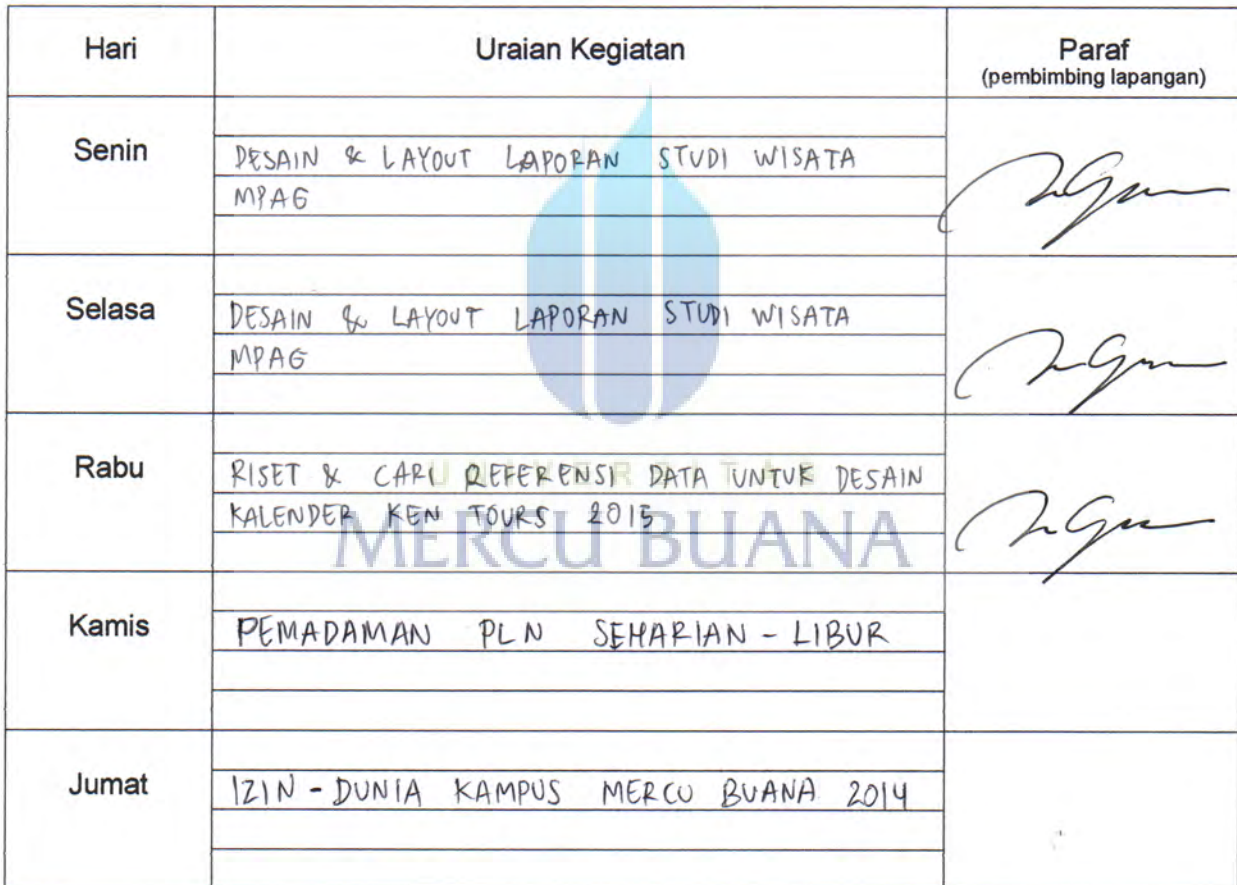 Hari Uraian Kegiatan Paraf
(pembimbing lapangan)
Senin
DESAIN & LAYOUT LAPORAN STUDI WISATA
MPAG
Selasa
DESAIN & LAYOUT LAPORAN STUDI WISATA
MPAG
Rabu
RISET & CARI REFERENSI DATA UNTUK DESAIN
UNIVERSITAS
KALENDER KEN TOURS 2015
MERCU BUANA
Kamis
PEMADAMAN PLN SEHARIAN - LIBUR
Jumat
IZIN - DUNIA KAMPUS MERCU BUANA 2014